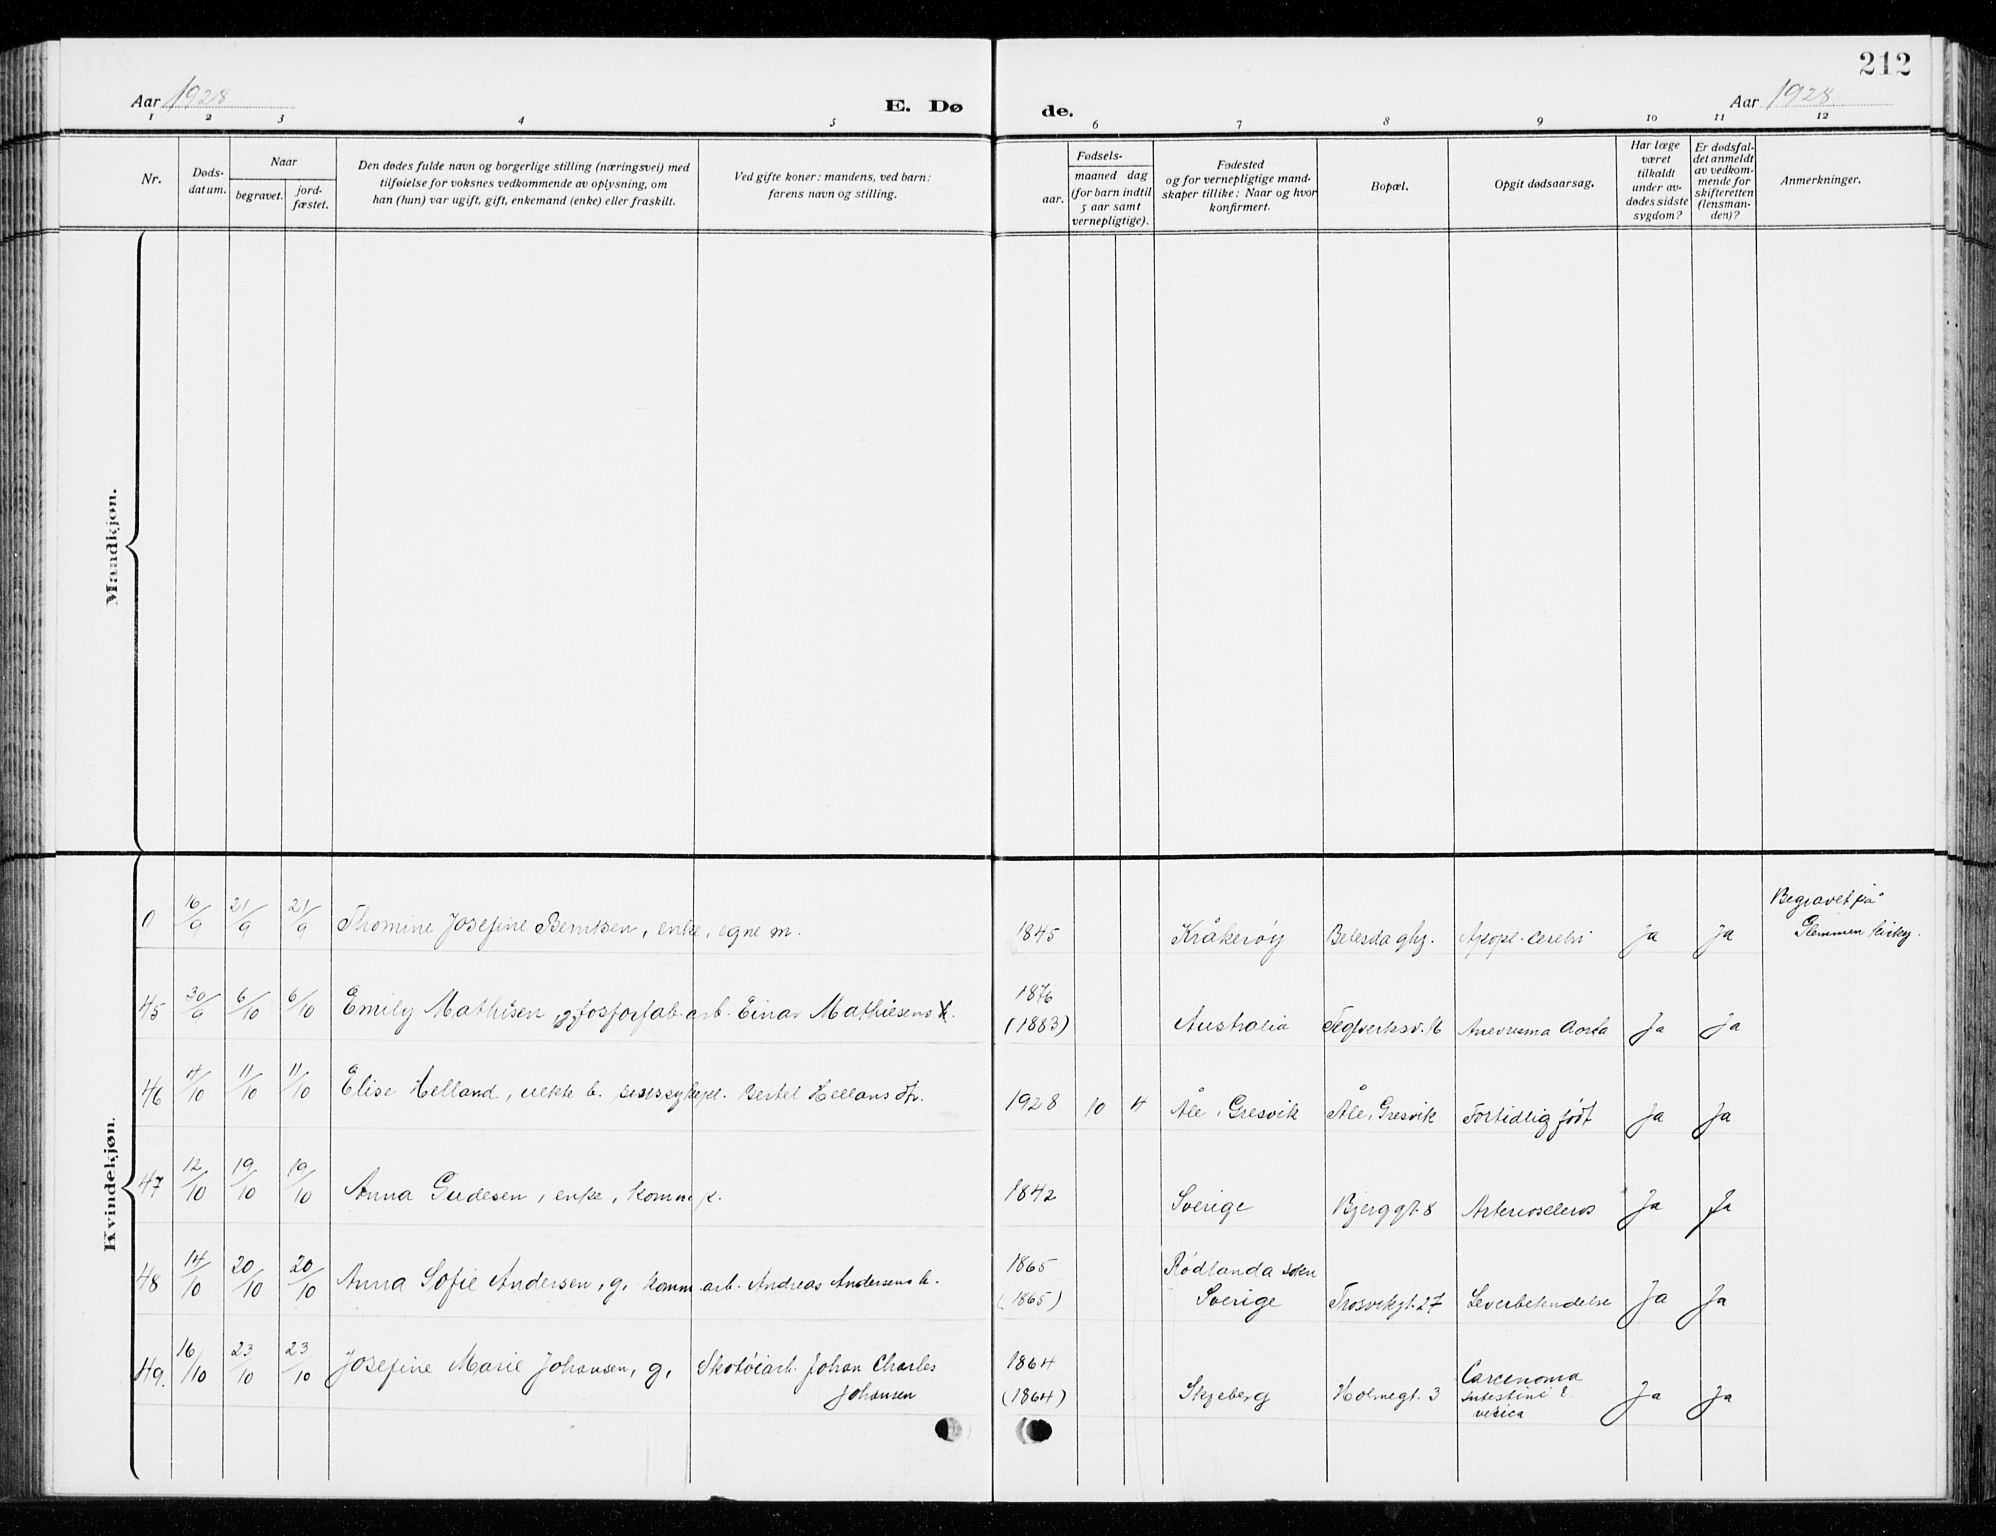 212
Aar 1928
E. Dø
de.
Aar 1928
1 2 3 4 5 6 7 8 9 10 11 12
Nr.
Døds-
datum.
Naar
begravet.
jord-
fæstet.
Den dødes fulde navn og borgerlige stilling (næringsvei) med
tilføielse for voksnes vedkommende av oplysning, om
han (hun) var ugift, gift, enkemand (enke) eller fraskilt.
Ved gifte koner: mandens, ved barn:
farens navn og stilling.
Fødsels-
aar.
maaned dag
(for barn indtil
5 aar samt
vernepligtige).
Fødested
og for vernepligtige mand-
skaper tillike: Naar og hvor
konfirmert.
Bopæl.
Opgit dødsaarsag.
Har læge
været
tilkaldt
under av-
dødes sidste
sygdom?
Er dødsfal-
det anmeldt
av vedkom-
mende for
skifteretten
(lensman-
den)?
Anmerkninger.
Mandkjøn.
Kvindekjøn.
0 16/9 21/9 21/9 Thomine Josefine Berntsen, enke, egne m. 1845 Kråkerøy Betesda ghj. Apopl. cerebri Ja Ja Begravet på
Glemmen kirkg.
45 30/9 6/10 6/10 Emily Mathisen, g, fosforfab.arb. Einar Mathiesens h. 1876
(1883) Australia Teglverksv. 16 Anevrisma Aorta Ja Ja
46 4/10 11/10 11/10 Elise Helland, uekte b. Bertel Hellans dtr. 1928 10 4 Åle, Gresvik Åle, Gresvik Fortidlig født Ja Ja
47 12/10 19/10 19/10 Anna Gudesen, enke, komm. 1842 Sverige Bjerggt. 8 Arterioscleros Ja Ja
48 14/10 20/10 20/10 Anna Sofie Andersen, g, komm.arb. Andreas Andersens h. 1865
(1865) Rødlanda sokn
Sverige Trosvikgt. 27 Leverbetendelse Ja Ja
49. 16/10 23/10 23/10 Josefine Marie Johansen, g, Skotøiarb. Johan Charles
Johansen 1864
(1864) Skjeberg Holmegt. 3 Carcenoma
intestini &
vesica Ja Ja